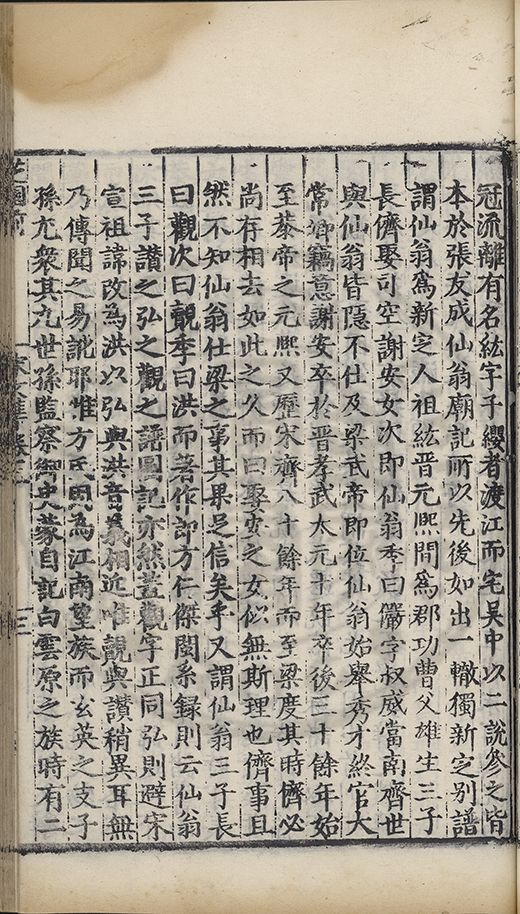 冠流離有名紘字千纓者渡江而宅吳中以二說參之皆
本於張友成仙翁廟記所以先後如出一轍獨新定別譜
謂仙翁爲新定人祖紘晉元熙間爲郡功曹父雄生三子
長儕娶司空謝安女次即仙翁季曰儼字叔威當南齊世
與仙翁皆隱不仕及梁武帝即位仙翁始舉秀才終官大
常卿竊意謝安卒於晉孝武太元十年卒後三十餘年始
至恭帝之元熙又歷宋齊八十餘年而至梁度其時儕必
尚存相去如此之久而曰娶安之女似無斯理也儕事且
然不知仙翁仕梁之事其果足信矣乎又謂仙翁三子長
曰觀次曰覿季曰洪而著作郎方仁傑閱系録則云仙翁
三子讃之弘之觀之譜圖記亦然蓋觀字正同弘則避宋
宣祖諱改為洪以弘與洪音義相近唯覿與讃稍異耳無
乃傳聞之易訛耶惟方氏因為江南望族而玄英之支子
孫尤衆其九世孫監察御史蒙自記白雲原之族時有二
芝園前
三